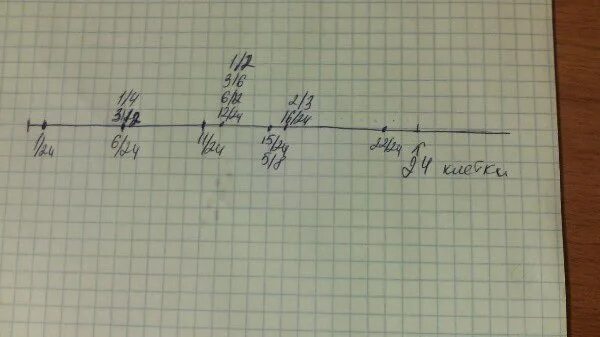 1/4
3/12
6/24
1/24
1/2
3/6
6/12
12/24
11/24
2/3
16/24
15/24
5/8
22/24
1
24 клетки